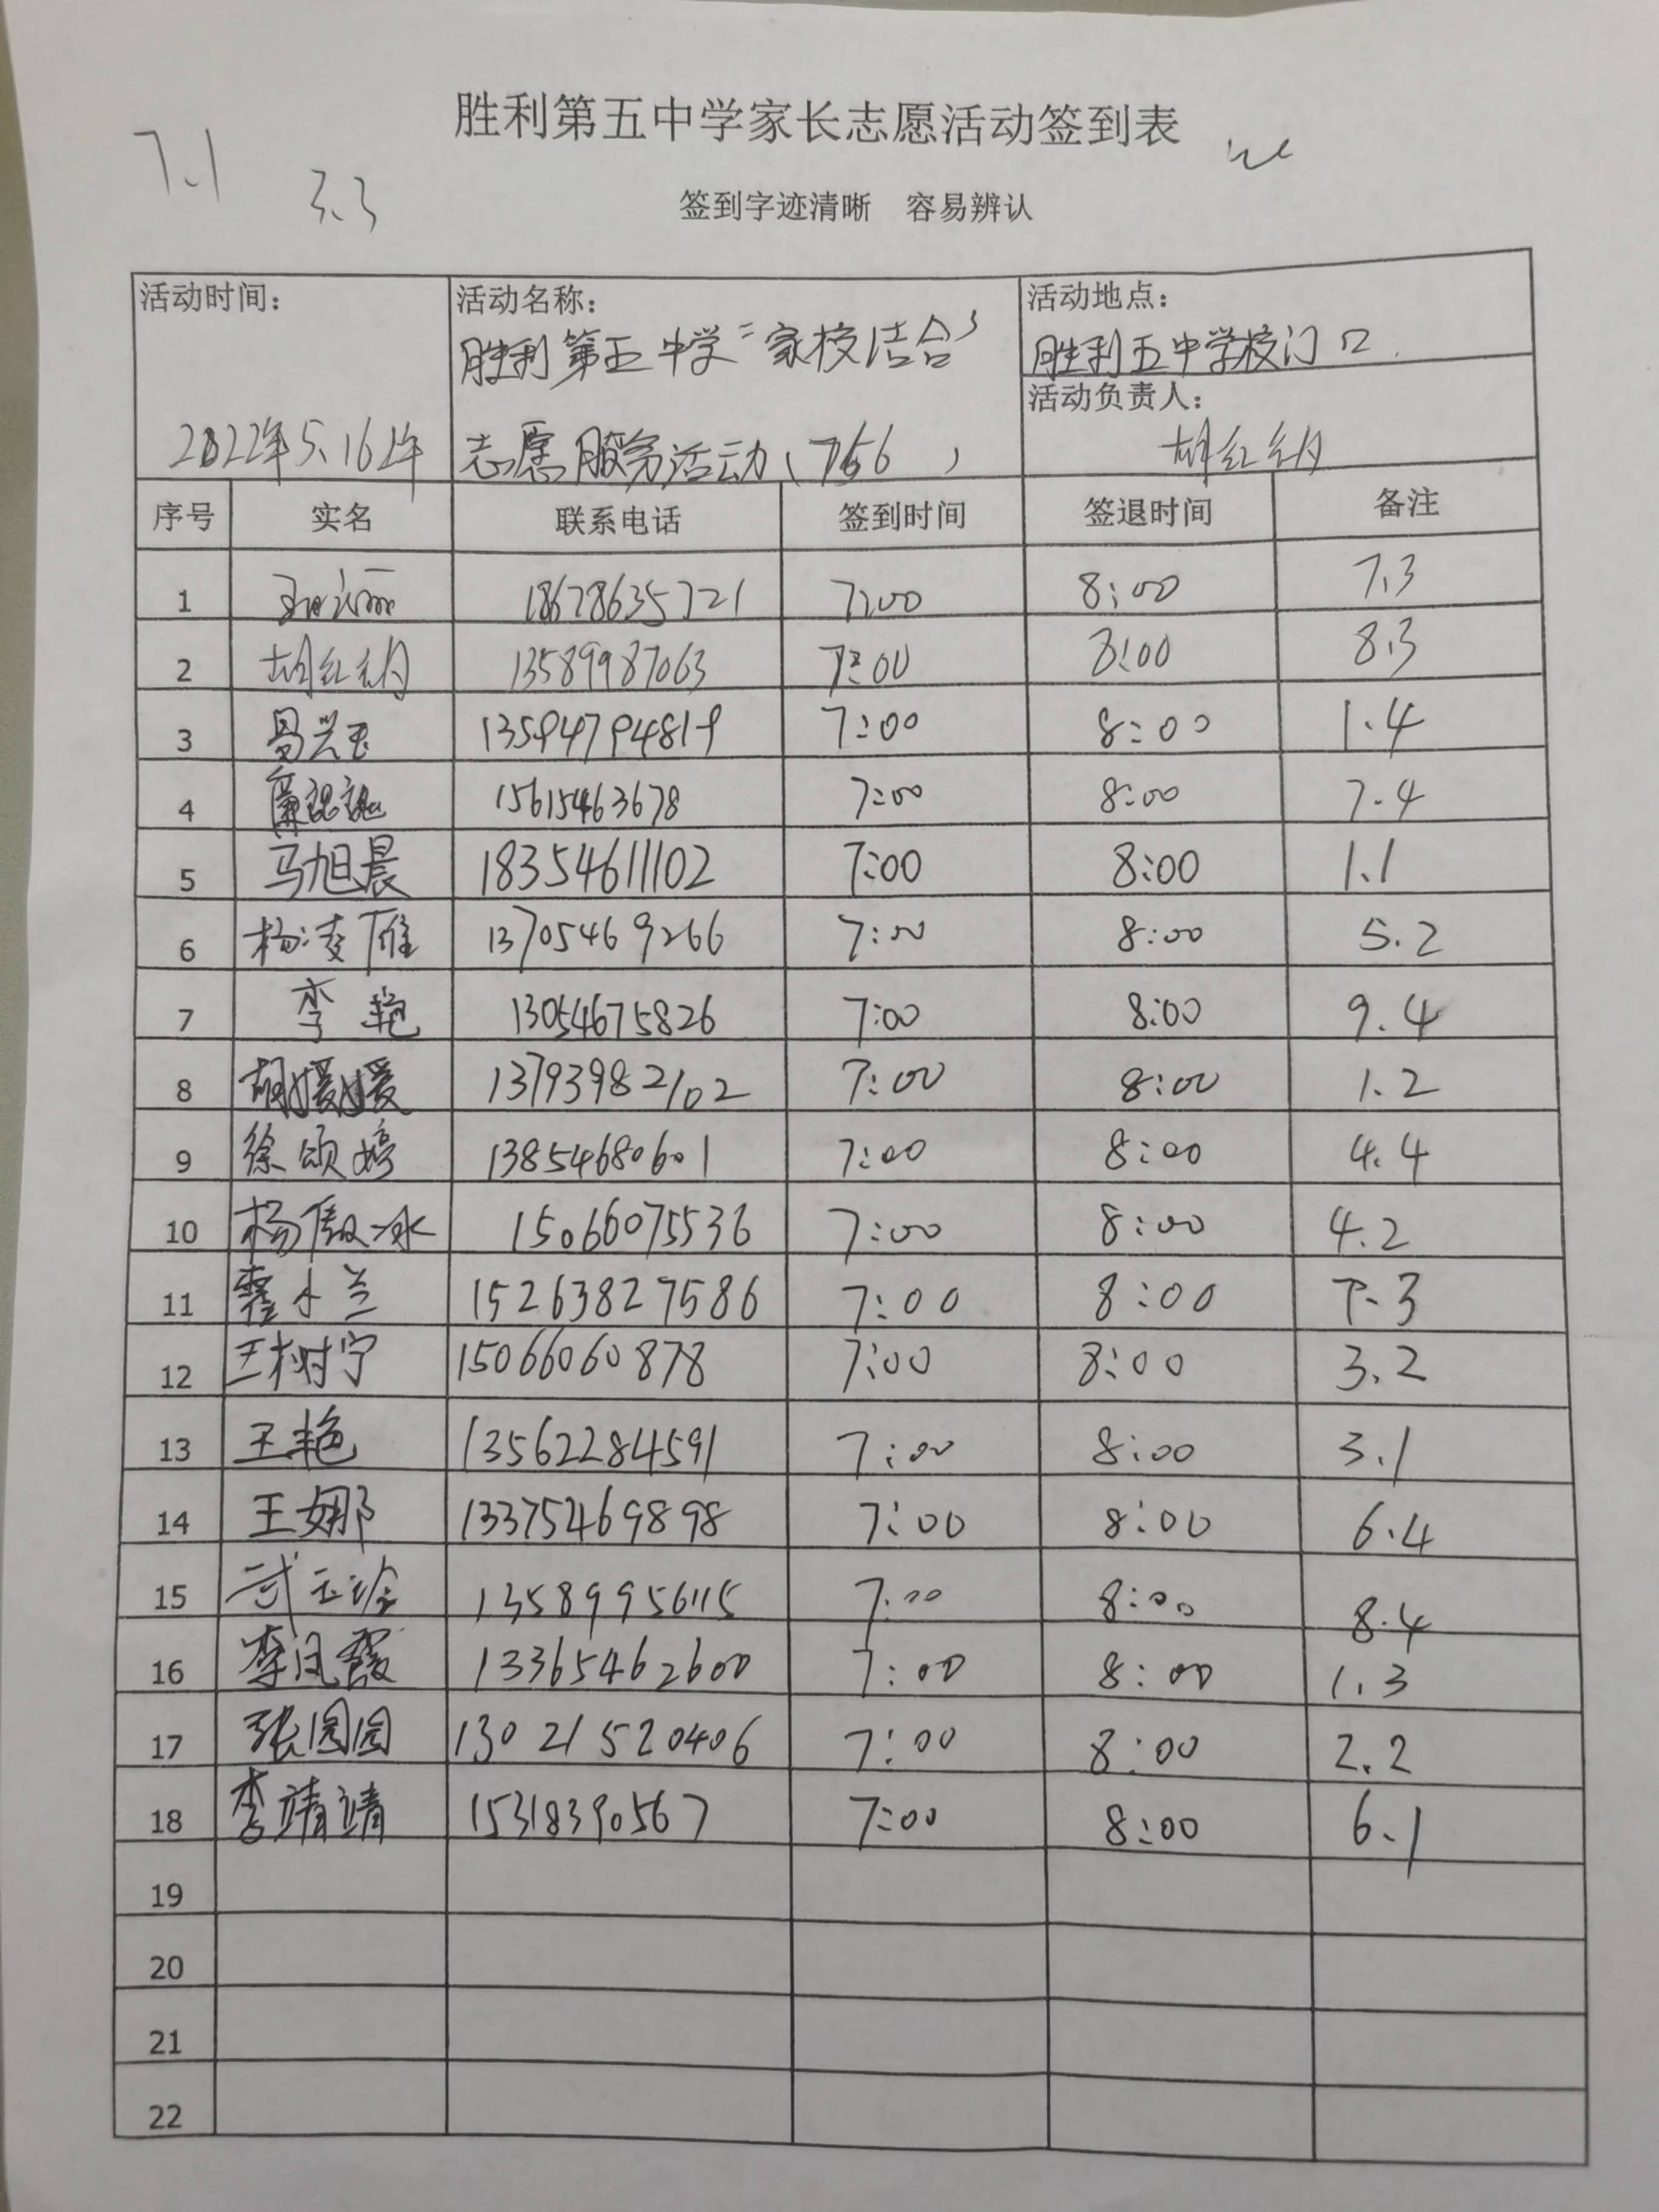 胜利第五中学家长志愿活动签到表
7.1
3.3
签到字迹清晰 容易辨认
活动时间：
2022年5.16上午
活动名称：
胜利第五中学“家校结合”
志愿服务活动（756）
活动地点：
胜利五中学校门口
活动负责人：
胡红纳
序号 实名 联系电话 签到时间 签退时间 备注
1 18678635721 7:00 8:00 7.3
2 胡红纳 13589987063 7:00 8:00 8.3
3 易兴玉 13594794819 7:00 8:00 1.4
4 15615463678 7:00 8:00 7.4
5 马旭晨 18354611102 7:00 8:00 1.1
6 杨凌雁 13705469266 7:00 8:00 5.2
7 李艳 13054675826 7:00 8:00 9.4
8 胡媛媛 13793982102 7:00 8:00 1.2
9 徐颂婷 13854680601 7:00 8:00 4.4
10 杨傲冰 15066075536 7:00 8:00 4.2
11 霍小兰 15263827586 7:00 8:00 7.3
12 王树宁 15066060878 7:00 8:00 3.2
13 王艳 13562284591 7:00 8:00 3.1
14 王娜 13375469898 7:00 8:00 6.4
15 13589956115 7:00 8:00 8.4
16 李凤霞 13365462600 7:00 8:00 1.3
17 张园园 13021520406 7:00 8:00 2.2
18 李靖靖 15318390567 7:00 8:00 6.1
19
20
21
22